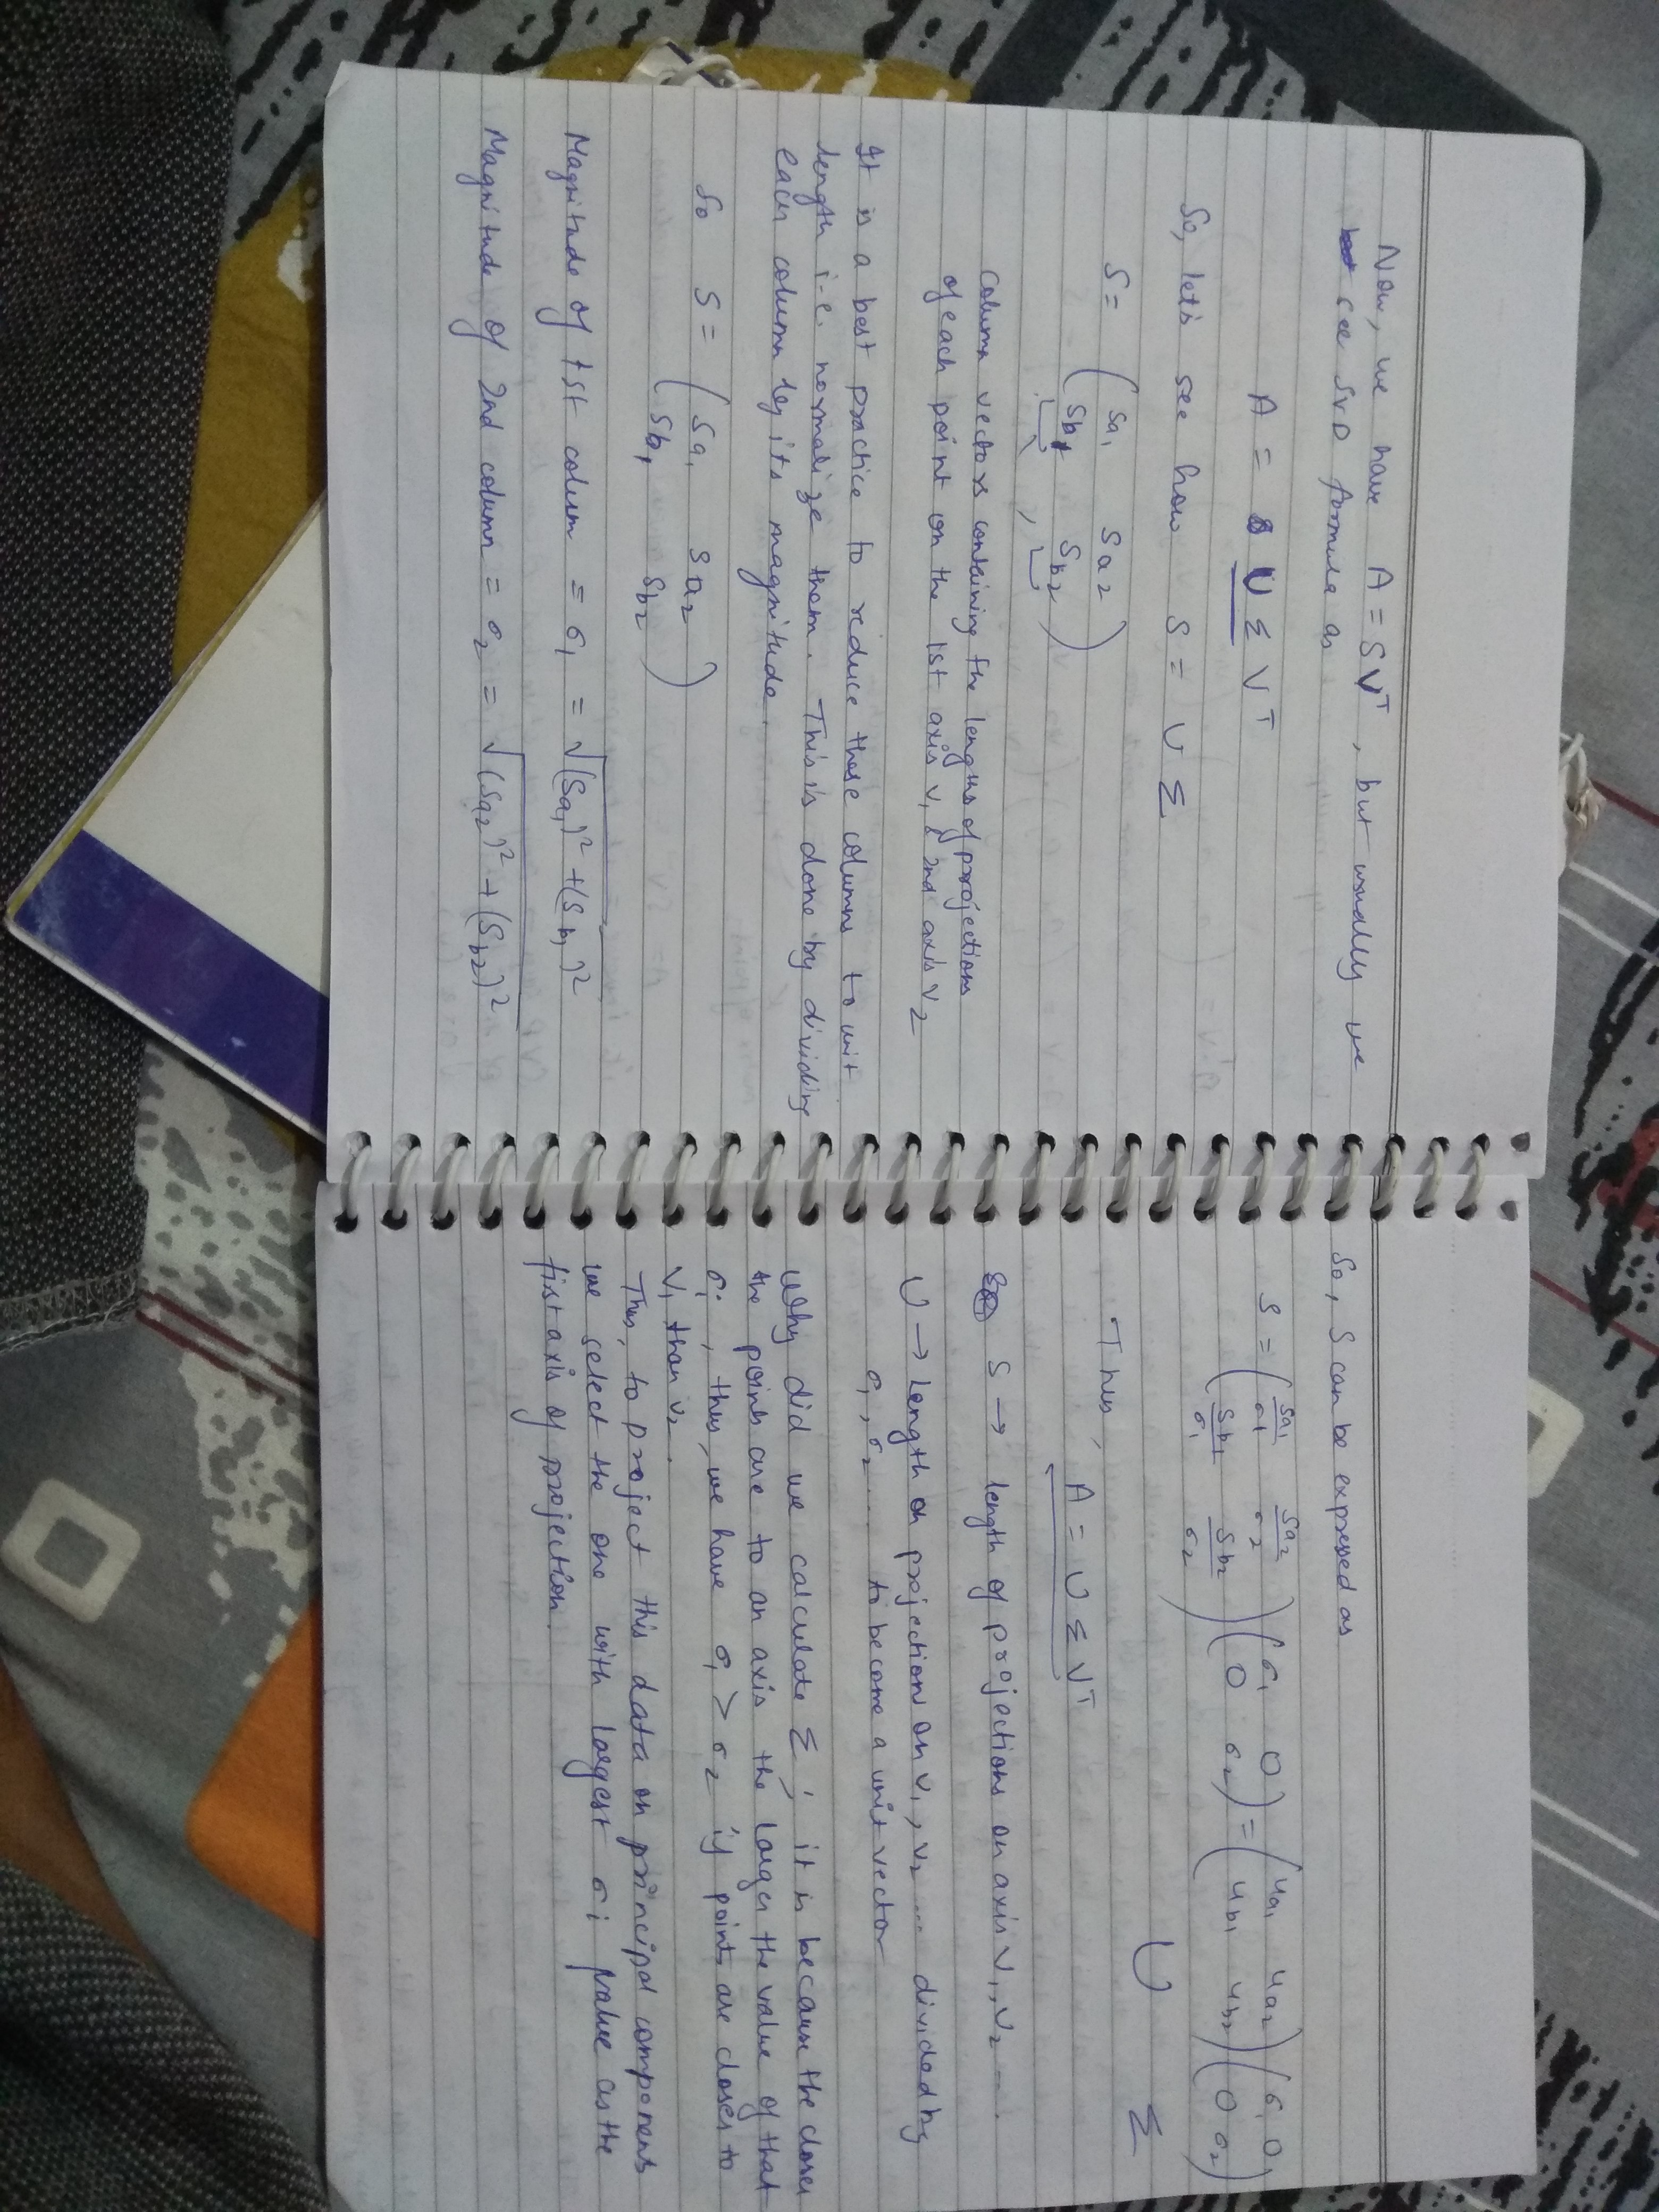 Now, we have A = SVᵀ, but usually we
see SVD formula as
A = U Σ Vᵀ
So, let's see how S = U Σ
S = ( Sa₁ Sa₂
Sb₁ Sb₂ )
column vectors containing the lengths of projections
of each point on the 1st axis v₁ & 2nd axis v₂
It is a best practice to reduce these columns to unit
length i.e. normalize them. This is done by dividing
each column by its magnitude.
So S = ( Sa₁ Sa₂
Sb₁ Sb₂ )
Magnitude of 1st colum = σ₁ = √(Sa₁)² + (Sb₁)²
Magnitude of 2nd column = σ₂ = √(Sa₂)² + (Sb₂)²
So, S can be expressed as
S = ( Sa₁/σ₁ Sa₂/σ₂ ) ( σ₁ 0 ) = ( ua₁ ua₂ ) ( σ₁ 0
( Sb₁/σ₁ Sb₂/σ₂ ) ( 0 σ₂ ) ( ub₁ ub₂ ) ( 0 σ₂ )
U Σ
Thus,
A = U Σ Vᵀ
S → length of projections on axis v₁, v₂ ....
U → length on projection on v₁, v₂ .... divided by
σ₁, σ₂ .... to become a unit vector
Why did we calculate Σ; it is because the closer
the points are to an axis the larger the value of that
σᵢ, thus, we have σ₁ > σ₂ if points are closer to
v₁ than v₂.
Thus, to project this data on principal components
we select the one with largest σᵢ value as the
first axis of projection.